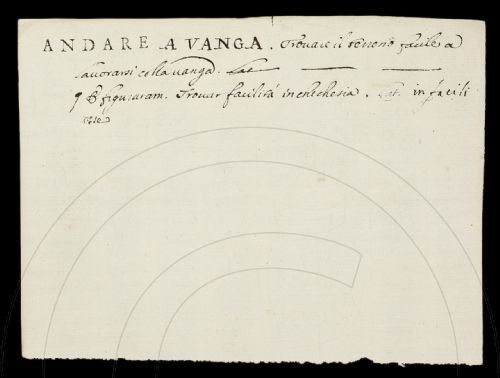 ANDARE A VANGA. Trovare il terreno facile a
lavorarsi colla vanga. Lat
¶ E figuraram. Trovar facilità in checchesia. Lat. in facili
esse